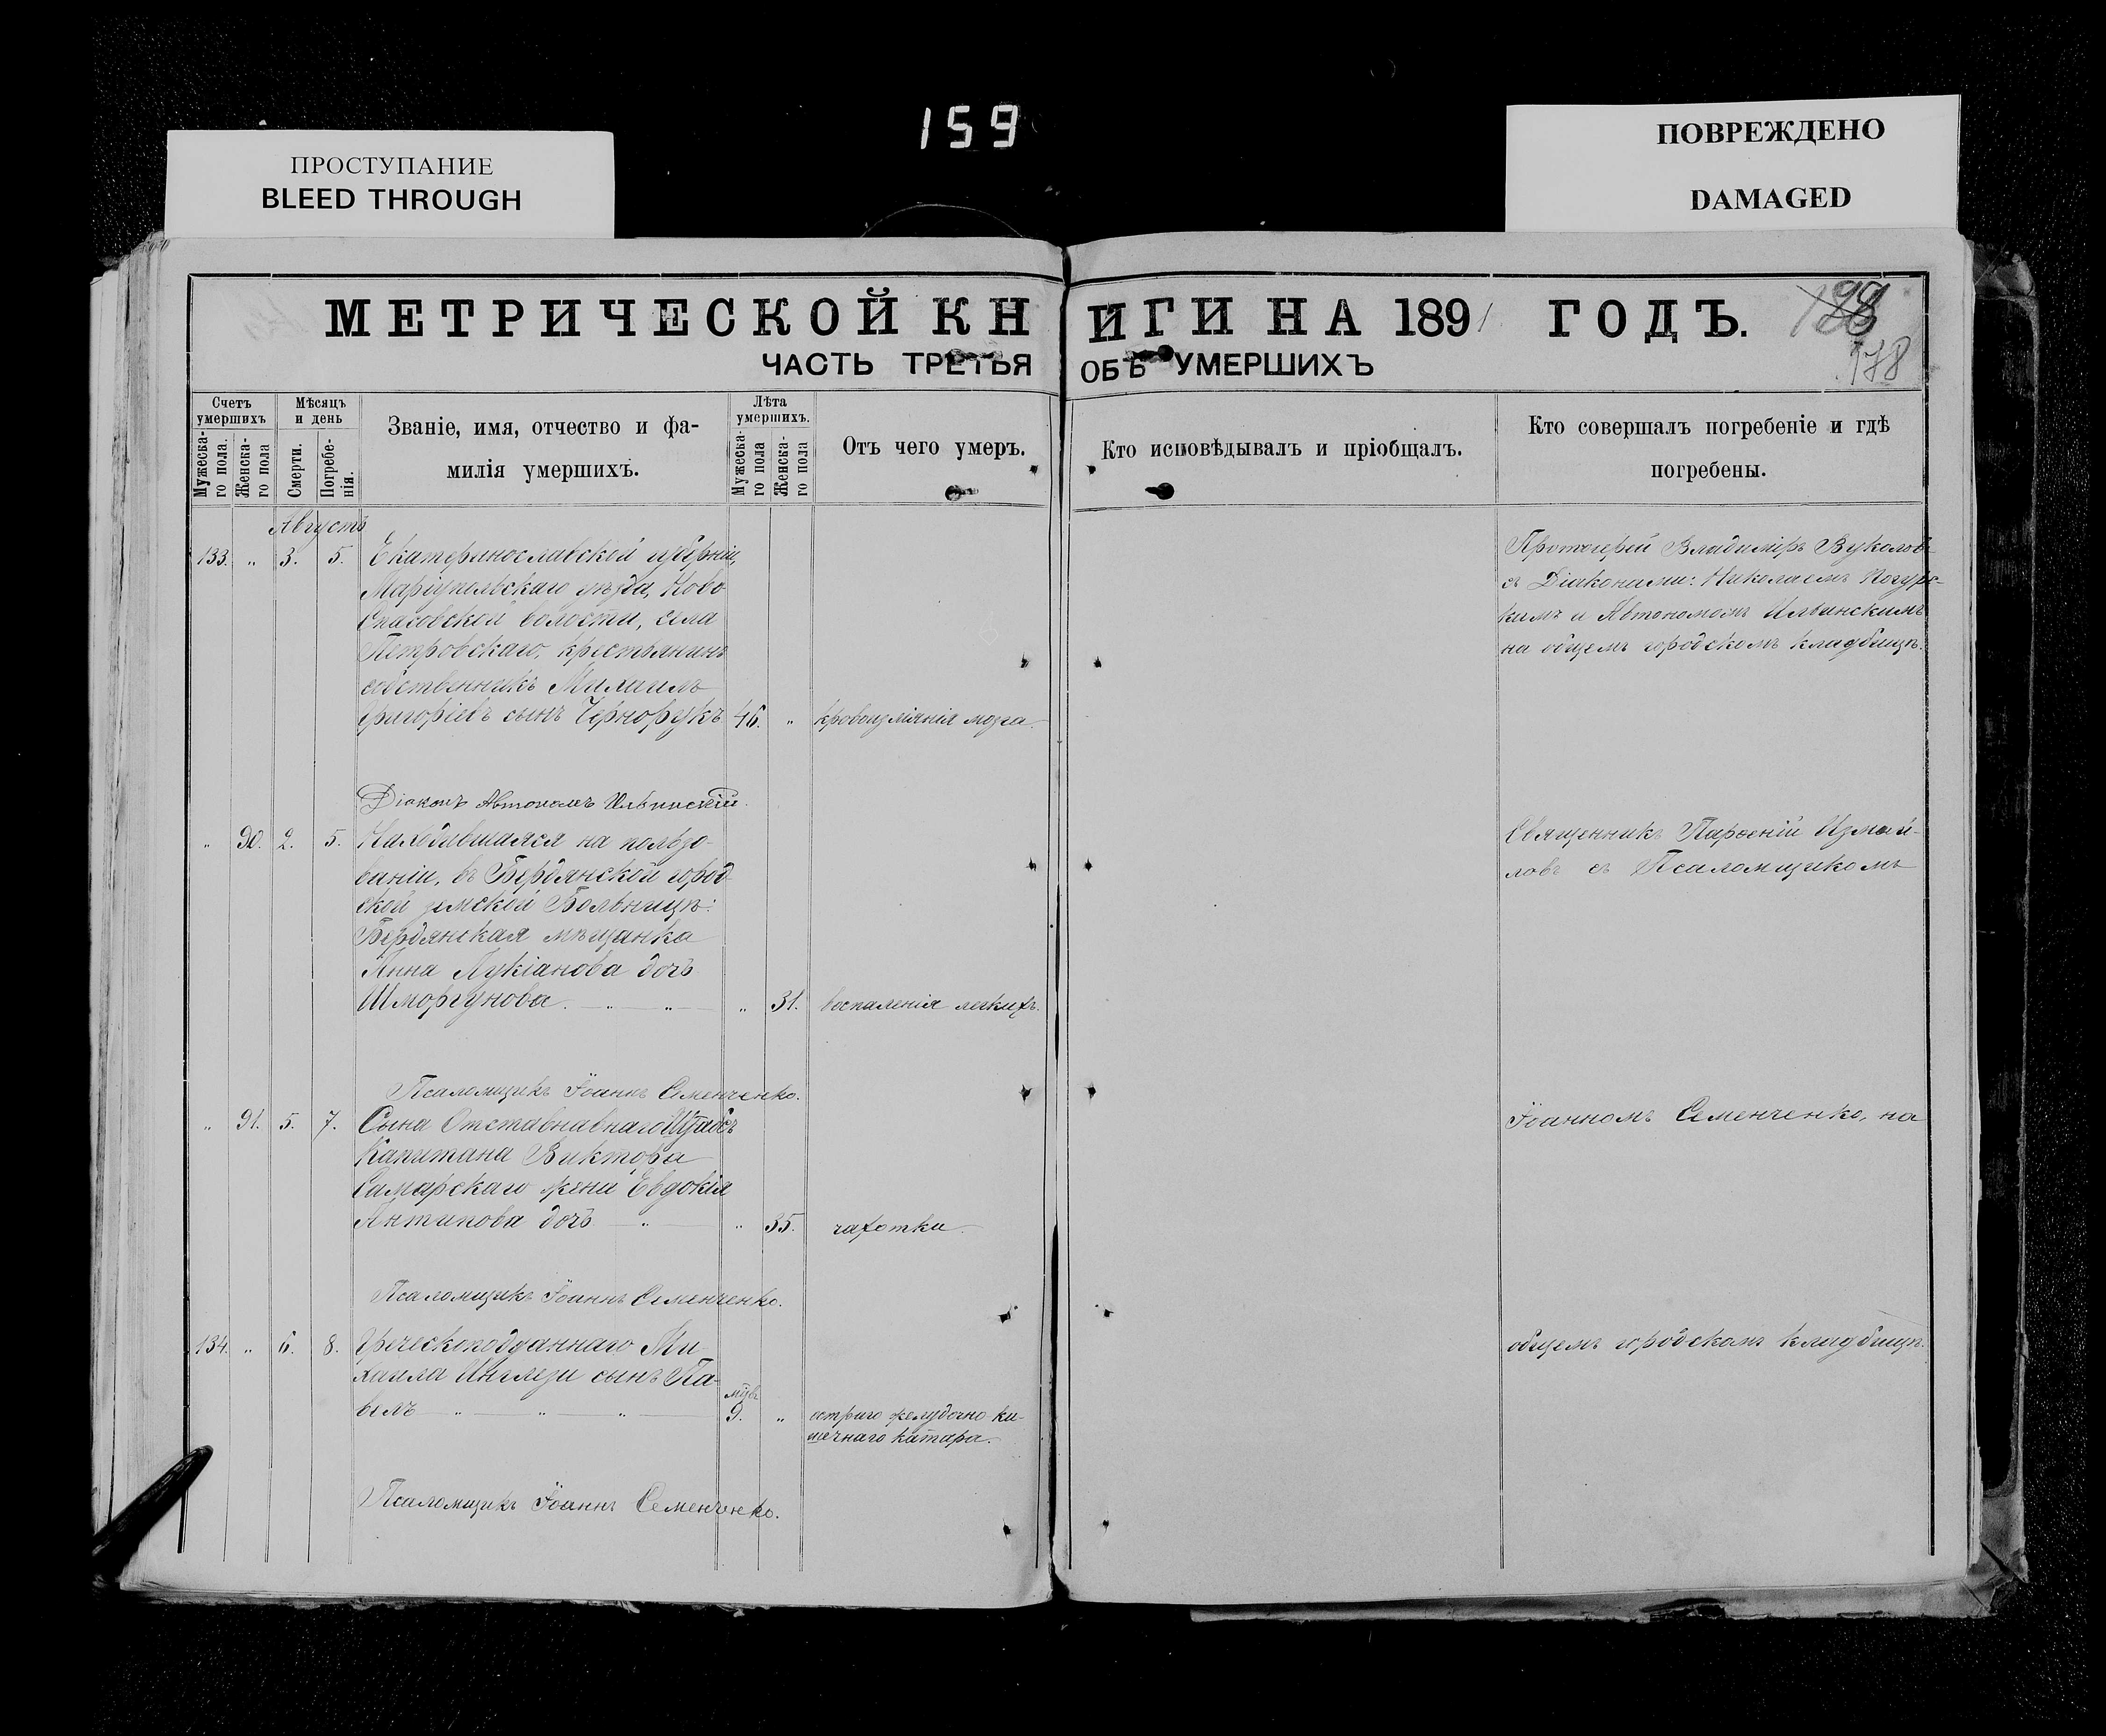 159
ПРОСТУПАНИЕ
BLEED THROUGH
ПОВРЕЖДЕНО
DAMAGED
МЕТРИЧЕСКОЙ КНИГИ НА 1891 ГОДЪ.
178
ЧАСТЬ ТРЕТЬЯ ОБЪ УМЕРШИХЪ
Счетъ умершихъ
Мужеска-го пола.
Женска-го пола
Мѣсяцъ и день
Смерти.
Погребе-нія.
Званіе, имя, отчество и фа-
милія умершихъ.
Лѣта умершихъ.
Мужеска-го пола
Женска-го пола
Отъ чего умеръ.
Кто исповѣдывалъ и пріобщалъ.
Кто совершалъ погребеніе и гдѣ
погребены.
Августъ
133. „ 3. 5. Екатеринославской губерніи,
Маріупольскаго уѣзда, Ново
Спасовской волости, села
Петровскаго, крестьянинъ
собственникъ Михаилъ
Григоріевъ сынъ Чернорукъ 46. „ кровоизліянія мозга
Протоіерей Владиміръ Вуколовъ
съ Діаконами: Николаемъ
кимъ и Автономомъ Ильинскимъ
на общемъ городскомъ кладбищѣ.
Діаконъ Автономъ Ильинскій.
„ 90. 2. 5. Находившаяся на пользо-
ваніи, въ Бердянской город
ской земской Больницѣ:
Бердянская мѣщанка
Анна Лукіанова дочь
Шморгунова. „ „ „ 31. воспаленія легкихъ.
Священникъ Парѳеній Измай-
ловъ съ Псаломщикомъ
Псаломщикъ Іоаннъ Семенченко.
„ 91. 5. 7. Сына Отставнавнаго Штабсъ
Капитана Виктора
Самарскаго жена Евдокія
Антипова дочь „ „ 35. чахотки
Іоанномъ Семенченко, на
Псаломщикъ Іоаннъ Семенченко.
134. „ 6. 8. Греческоподданнаго Ми
хаила Инглези сынъ Па-
велъ „ „ „ мѣс. 9. „ остраго желудочно ки-
шечнаго катара.
общемъ городскомъ кладбищѣ.
Псаломщикъ Іоаннъ Семенченко.